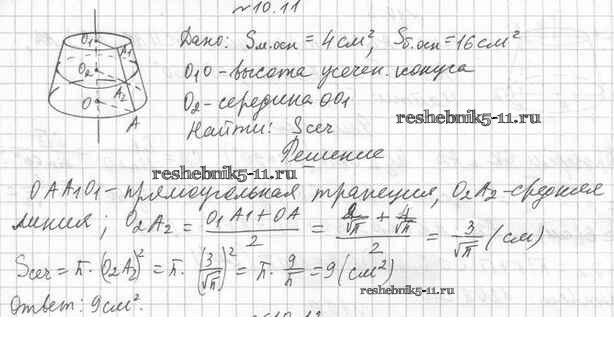 №10.11
Дано: Sм.осн = 4 см², Sб.осн = 16 см²
O₁O - высота усечен. конуса
O₂ - середина OO₁
Найти: Sсеч
reshebnik5-11.ru
Решение
reshebnik5-11.ru
OAA₁O₁ - прямоугольная трапеция, O₂A₂ - средняя
линия; O₂A₂ = (O₁A1 + OA)/2 = (2/√π + 4/√π)/2 = 3/√π (см)
Sсеч = π · (O₂A₂)² = π · (3/√π)² = π · 9/π = 9 (см²)
reshebnik5-11.ru
Ответ: 9 см².
O₁
A₁
O₂
A₂
O
A